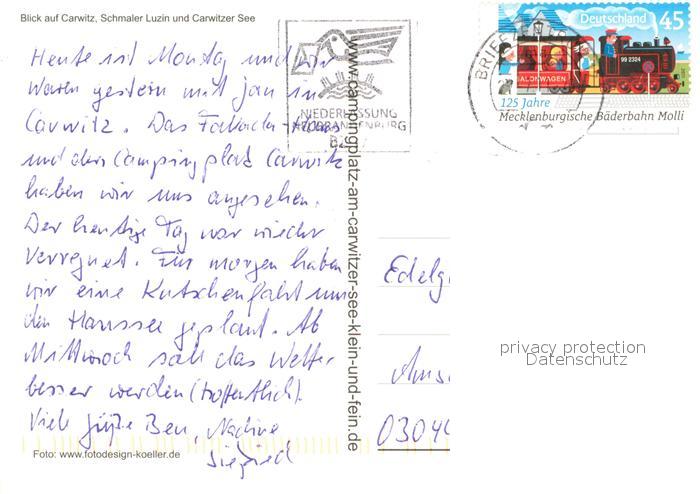 Blick auf Carwitz, Schmaler Luzin und Carwitzer See
Heute ist Montag und wir
waren gestern mit Jan in
Carwitz. Das Fallada-Haus
und den Campingplatz Carwitz
haben wir uns angesehen.
Der heutige Tag war wieder
verregnet. Für morgen haben
wir eine Kutschenfahrt um
den Haussee geplant. Ab
Mittwoch soll das Wetter
besser werden (hoffentlich).
Viele Grüße Ben, Nadine
Siegfried
Foto: www.fotodesign-koeller.de
NIEDERLASSUNG
NEUBRANDENBURG
BZ
www.campingplatz-am-carwitzer-see-klein-und-fein.de
BRIEF
Deutschland 45
99 2324
SALONWAGEN
125 Jahre
Mecklenburgische Bäderbahn Molli
Edelg
privacy protection
Datenschutz
0304